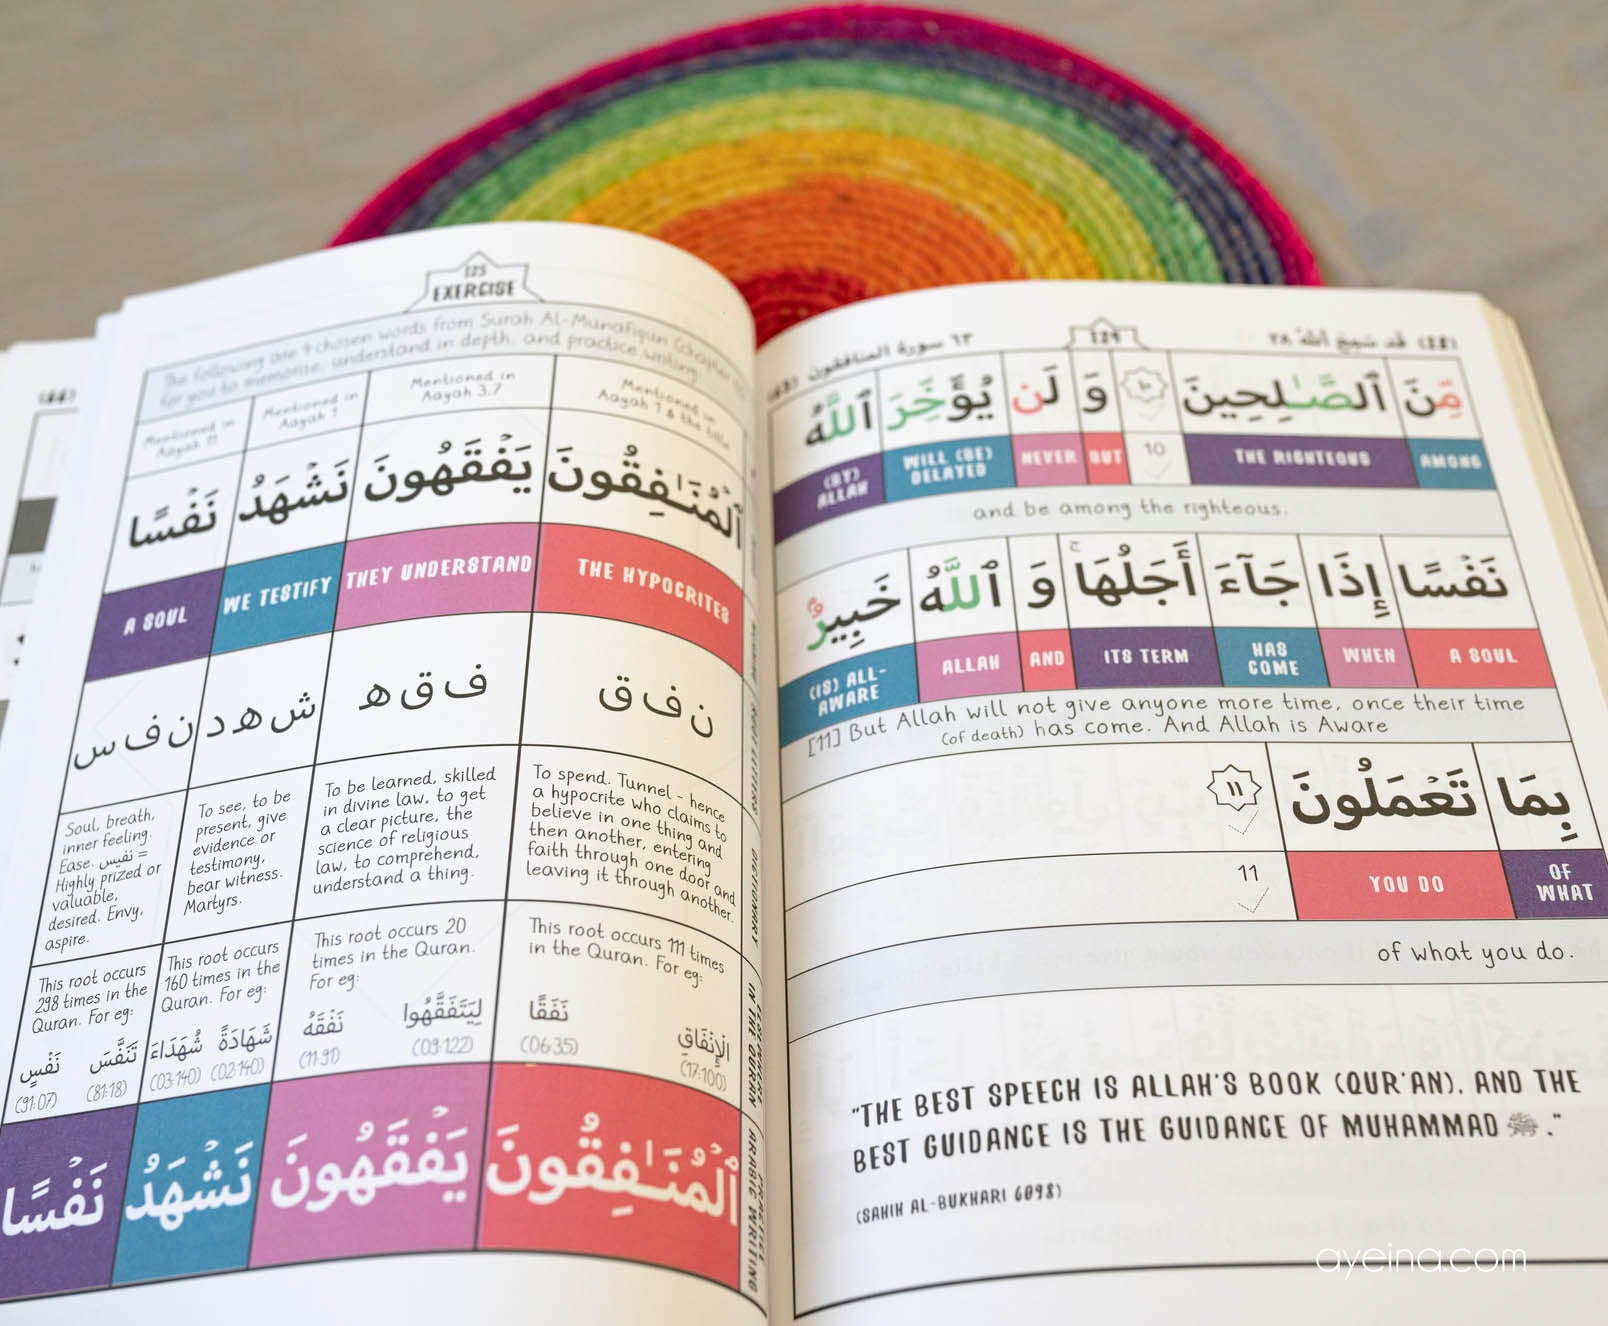 125
EXERCISE
The following are 4 chosen words from Surah Al-Munafiqun (chapter
for you to memorise, understand in depth, and practice writing.
Mentioned in Aayah 11
Mentioned in Aayah 1
Mentioned in Aayah 3,7
Mentioned in Aayah 1 & the title
ٱلْمُنَـٰفِقُونَ يَفْقَهُونَ نَشْهَدُ نَفْسًا
A SOUL
WE TESTIFY
THEY UNDERSTAND
THE HYPOCRITES
ن ف ق
ف ق ه
ش ه د
ن ف س
Soul, breath,
inner feeling.
Ease. نفيس =
Highly prized or
valuable,
desired. Envy,
aspire.
To see, to be
present, give
evidence or
testimony,
bear witness.
Martyrs.
To be learned, skilled
in divine law, to get
a clear picture, the
science of religious
law, to comprehend,
understand a thing.
To spend. Tunnel - hence
a hypocrite who claims to
believe in one thing and
then another, entering
faith through one door and
leaving it through another.
DICTIONARY
This root occurs
298 times in the
Quran. For eg:
نَفْسٍ تَنَفَّسَ
(91:07) (81:18)
This root occurs
160 times in the
Quran. For eg:
شُهَدَاءَ شَهَادَةً
(03:140) (02:140)
This root occurs 20
times in the Quran.
For eg:
نَفْقَهُ لِيَتَفَقَّهُوا
(11:91) (09:122)
This root occurs 111 times
in the Quran. For eg:
نَفَقًا الْإِنْفَاقِ
(06:35) (17:100)
ELSEWHERE
IN THE QURAN
ٱلْمُنَـٰفِقُونَ يَفْقَهُونَ نَشْهَدُ نَفْسًا
PRACTICE
ARABIC WRITING
(63) سورة المنافقون ٦٣
124
(28) قد سمع الله ٢٨
مِّنَ ٱلصَّـٰلِحِينَ ١٠ وَ لَن يُؤَخِّرَ ٱللَّهُ
(BY) ALLAH
WILL (BE) DELAYED
NEVER
BUT
10
THE RIGHTEOUS
AMONG
and be among the righteous.
نَفْسًا إِذَا جَآءَ أَجَلُهَا ۚ وَ ٱللَّهُ خَبِيرٌۢ
(IS) ALL-AWARE
ALLAH
AND
ITS TERM
HAS COME
WHEN
A SOUL
[11] But Allah will not give anyone more time, once their time
(of death) has come. And Allah is Aware
بِمَا تَعْمَلُونَ ١١
11
YOU DO
OF WHAT
of what you do.
"THE BEST SPEECH IS ALLAH'S BOOK (QUR'AN), AND THE
BEST GUIDANCE IS THE GUIDANCE OF MUHAMMAD ﷺ."
(SAHIH AL-BUKHARI 6098)
ayeina.com